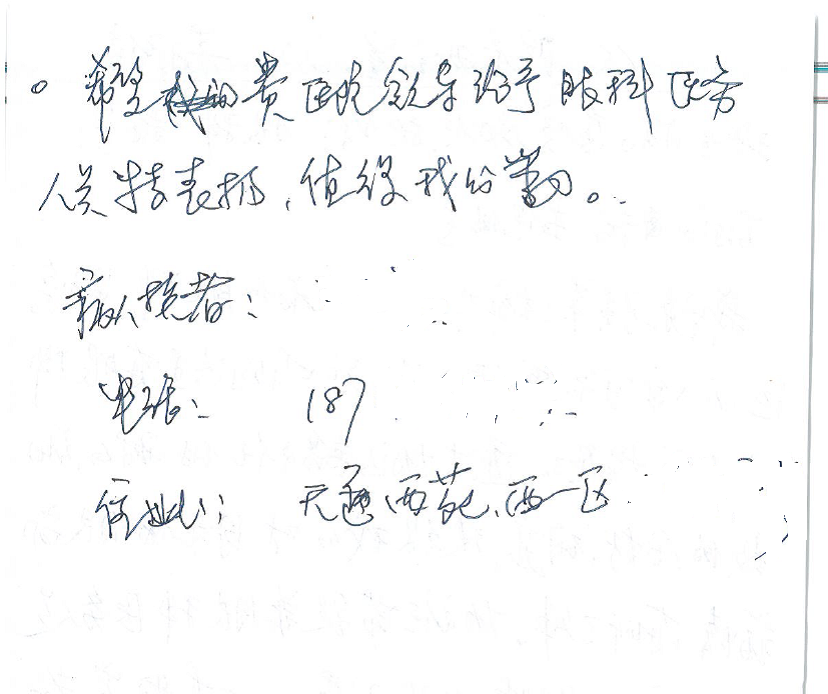 。希望贵医院领导给予眼科医务
人员特表扬,值得我们学习。
献扰者:
电话: 187
住址: 天通西苑、西一区